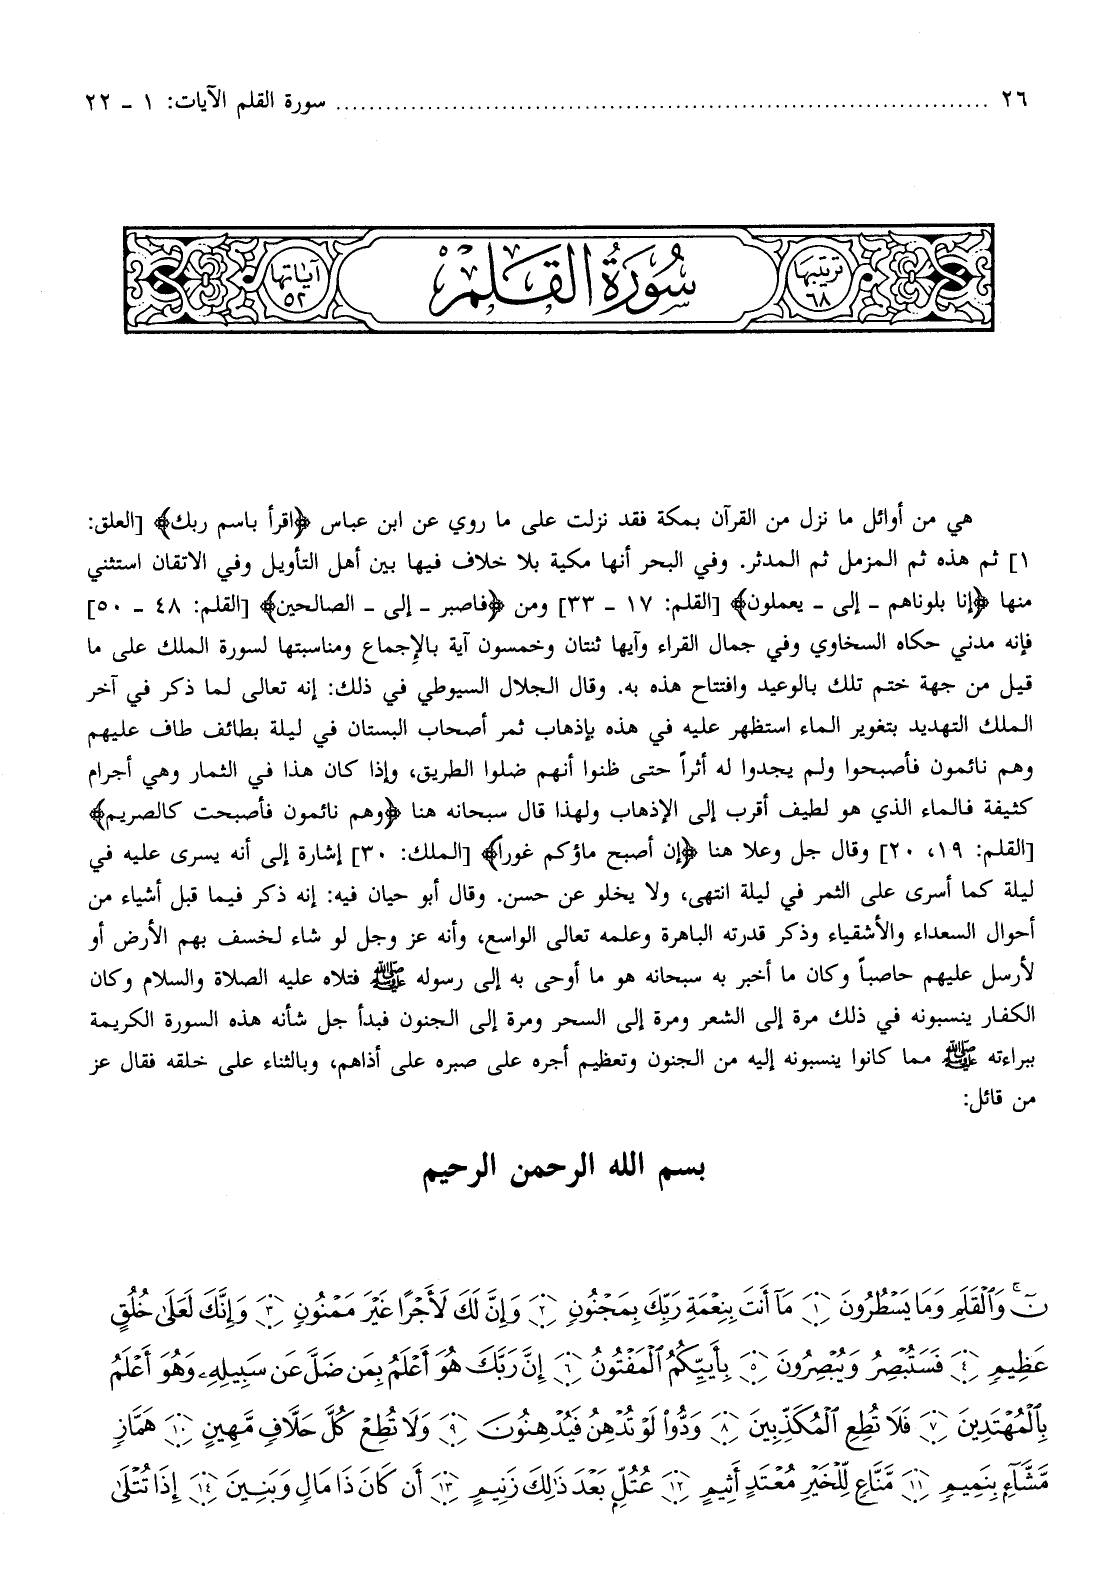 ٢٦ ........................................ سورة القلم الآيات: ١ - ٢٢
ترتيبها ٦٨
سُورَةُ القَلَمْ
آياتها ٥٢
هي من أوائل ما نزل من القرآن بمكة فقد نزلت على ما روي عن ابن عباس ﴿اقرأ باسم ربك﴾ [العلق:
١] ثم هذه ثم المزمل ثم المدثر. وفي البحر أنها مكية بلا خلاف فيها بين أهل التأويل وفي الاتقان استثني
منها ﴿إنا بلوناهم - إلى - يعملون﴾ [القلم: ١٧ - ٣٣] ومن ﴿فاصبر - إلى - الصالحين﴾ [القلم: ٤٨ - ٥٠]
فإنه مدني حكاه السخاوي وفي جمال القراء وآيها ثنتان وخمسون آية بالإجماع ومناسبتها لسورة الملك على ما
قيل من جهة ختم تلك بالوعيد وافتتاح هذه به. وقال الجلال السيوطي في ذلك: إنه تعالى لما ذكر في آخر
الملك التهديد بتغوير الماء استظهر عليه في هذه بإذهاب ثمر أصحاب البستان في ليلة بطائف طاف عليهم
وهم نائمون فأصبحوا ولم يجدوا له أثراً حتى ظنوا أنهم ضلوا الطريق، وإذا كان هذا في الثمار وهي أجرام
كثيفة فالماء الذي هو لطيف أقرب إلى الإذهاب ولهذا قال سبحانه هنا ﴿وهم نائمون فأصبحت كالصريم﴾
[القلم: ١٩، ٢٠] وقال جل وعلا هنا ﴿إن أصبح ماؤكم غوراً﴾ [الملك: ٣٠] إشارة إلى أنه يسرى عليه في
ليلة كما أسرى على الثمر في ليلة انتهى، ولا يخلو عن حسن. وقال أبو حيان فيه: إنه ذكر فيما قبل أشياء من
أحوال السعداء والأشقياء وذكر قدرته الباهرة وعلمه تعالى الواسع، وأنه عز وجل لو شاء لخسف بهم الأرض أو
لأرسل عليهم حاصباً وكان ما أخبر به سبحانه هو ما أوحى به إلى رسوله ﷺ فتلاه عليه الصلاة والسلام وكان
الكفار ينسبونه في ذلك مرة إلى الشعر ومرة إلى السحر ومرة إلى الجنون فبدأ جل شأنه هذه السورة الكريمة
ببراءته ﷺ مما كانوا ينسبونه إليه من الجنون وتعظيم أجره على صبره على أذاهم، وبالثناء على خلقه فقال عز
من قائل:
بسم الله الرحمن الرحيم
نٓ ۚ وَٱلْقَلَمِ وَمَا يَسْطُرُونَ ﴿١﴾ مَآ أَنتَ بِنِعْمَةِ رَبِّكَ بِمَجْنُونٍ ﴿٢﴾ وَإِنَّ لَكَ لَأَجْرًا غَيْرَ مَمْنُونٍ ﴿٣﴾ وَإِنَّكَ لَعَلَىٰ خُلُقٍ
عَظِيمٍ ﴿٤﴾ فَسَتُبْصِرُ وَيُبْصِرُونَ ﴿٥﴾ بِأَييِّكُمُ ٱلْمَفْتُونُ ﴿٦﴾ إِنَّ رَبَّكَ هُوَ أَعْلَمُ بِمَن ضَلَّ عَن سَبِيلِهِۦ وَهُوَ أَعْلَمُ
بِٱلْمُهْتَدِينَ ﴿٧﴾ فَلَا تُطِعِ ٱلْمُكَذِّبِينَ ﴿٨﴾ وَدُّوا۟ لَوْ تُدْهِنُ فَيُدْهِنُونَ ﴿٩﴾ وَلَا تُطِعْ كُلَّ حَلَّافٍ مَّهِينٍ ﴿١٠﴾ هَمَّازٍ
مَّشَّآءٍۭ بِنَمِيمٍ ﴿١١﴾ مَّنَّاعٍ لِّلْخَيْرِ مُعْتَدٍ أَثِيمٍ ﴿١٢﴾ عُتُلٍّۭ بَعْدَ ذَٰلِكَ زَنِيمٍ ﴿١٣﴾ أَن كَانَ ذَا مَالٍ وَبَنِينَ ﴿١٤﴾ إِذَا تُتْلَىٰ